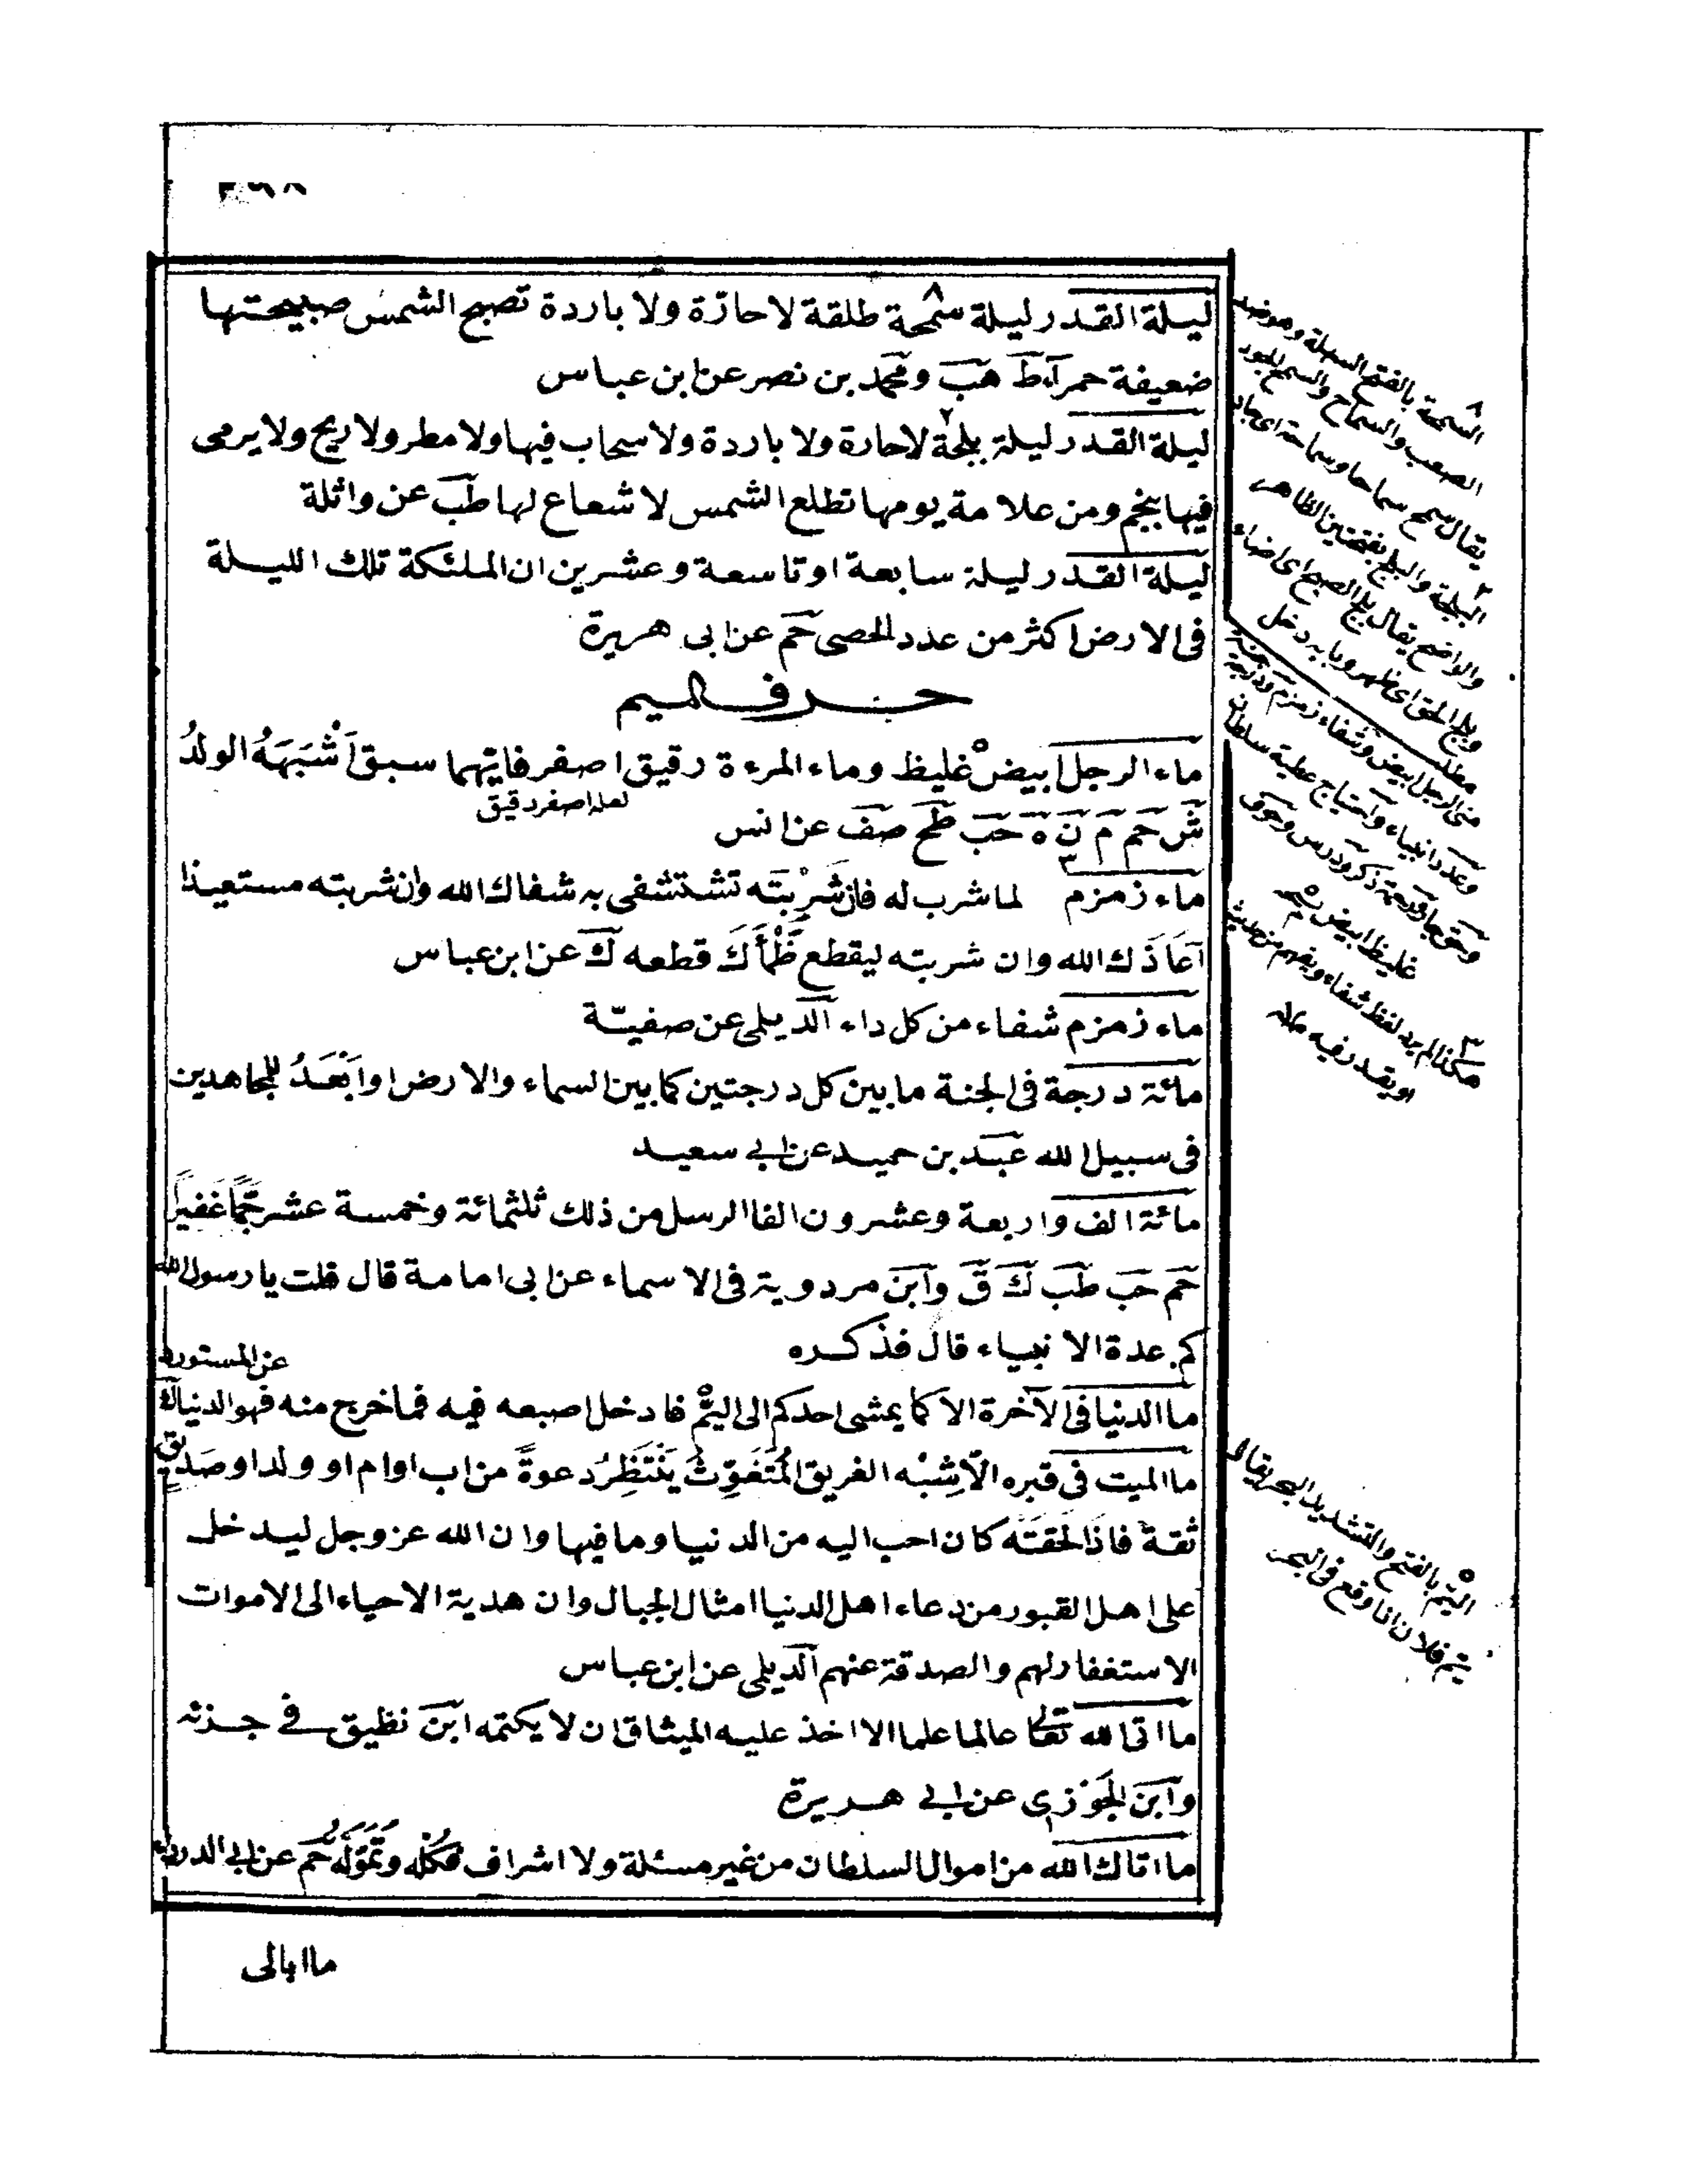 ليلة القدر ليلة سمحة طلقة لا حارّة ولا باردة تصبح الشمس صبيحتها
ضعيفة حمرآء ط هب ومحمد بن نصر عن ابن عباس
ليلة القدر ليلة بلجة لاحارة ولا باردة ولا سحاب فيها ولا مطر ولا ريح ولا يرمى
فيها بنجم ومن علامة يومها تطلع الشمس لا شعاع لها طب عن واثلة
ليلة القدر ليلة سابعة او تاسعة وعشرين ان الملئكة تلك الليلة
فى الارض اكثر من عدد الحصى حم عن ابى هريرة
حرف الميم
ماء الرجل ابيض غليظ وماء المرءة رقيق اصفر فايهما سبق اَشْبَهَهُ الولدُ
لعله اصفر رقيق
ش حم م ن ه حب طح صف عن انس
ماء زمزم لما شرب له فان شَرِبْتَه تشتشفى به شفاك الله وان شربته مستعيذا
آعَاذَك الله وان شربته ليقطع ظَمْأَكَ قطعه ك عن ابن عباس
ماء زمزم شفاء من كل داء الديلمى عن صفيّة
مائة درجة فى الجنة مابين كل درجتين كما بين السماء والارض او اَبْعَدُ للمجاهدين
فى سبيل الله عبد بن حميد عن ابى سعيد
مائة الف واربعة وعشرون الفا الرسل من ذلك ثلثمائة وخمسة عشر جَمًّا غَفيرًا
حم حب طب ك ق وابن مردوية فى الاسماء عن ابى امامة قال قلت يا رسول الله
كم عدة الانبياء قال فذكره
عن المستورد
ما الدنيا فى الآخرة الا كما يمشى احدكم الى اليَمّ فادخل اصبعه فيه فما خرج منه فهو الدنيا ك
ما الميت فى قبره الّا شِبْه الغريق المُتَغَوِّثْ يَنْتَظِرُ دعوةً من اب او ام او ولد او صَديق
ثقة فاذا لحقَتْه كان احب اليه من الدنيا وما فيها وان الله عز وجل ليدخل
على اهل القبور من دعاء اهل الدنيا امثال الجبال وان هدية الاحياء الى الاموات
الاستغفار لهم والصدقة عنهم الديلمى عن ابن عباس
ما اتى الله تعالى عالما علما الا اخذ عليه الميثاق ان لا يكتمه ابن نظيق فى جزئه
وابن الجَوْزى عن ابى هريرة
ما اتاك الله من اموال السلطان من غير مسئلة ولا اشراف فكُلْه وتَمَوَّلْه حم عن ابى الدرداء
ما ابالى
السمحة بالفتح السهلة
الصعب والسماح والسمح الجود
يقال سمح سماحا وسماحة اى جاد
البلجة والبلج بفتحتين الظاهر
والواضح يقال بلج الصبح اى اضاء
وبلج الحق اى ظهر وبابه دخل
مطلب
منى الرجل ابيض وشفاء زمزم
وعدد انبياء واحتياج عطية سلطان
غليظ ابيض نسخه
هكذا لم يرد لفظ شفاء ويفهم من حديث
او يقدر فيه
اليَمّ بالفتح والتشديد البحر يقال
يمّ فلان اذا وقع فى البحر